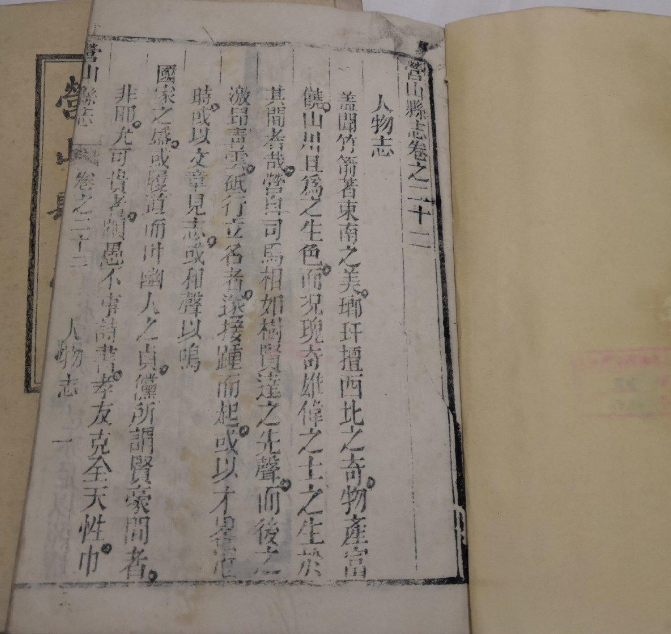 營山縣志卷之二十二
人物志
蓋聞竹箭著東南之美瑯玕擅西北之奇物產富
饒山川且爲之生色而況瑰奇雄偉之士之生於
其間者哉營自司馬相如樹賢達之先聲而後之
激昻靑雲砥行立名者遂接踵而起或以才畧
時或以文章見志或和聲以鳴
國家之盛或履道而叶幽人之貞儻所謂賢豪間者
非耶尤可貴者顓愚不事詩書孝友克全天性巾
營山縣志
卷之二十二
人物志
一
營山縣